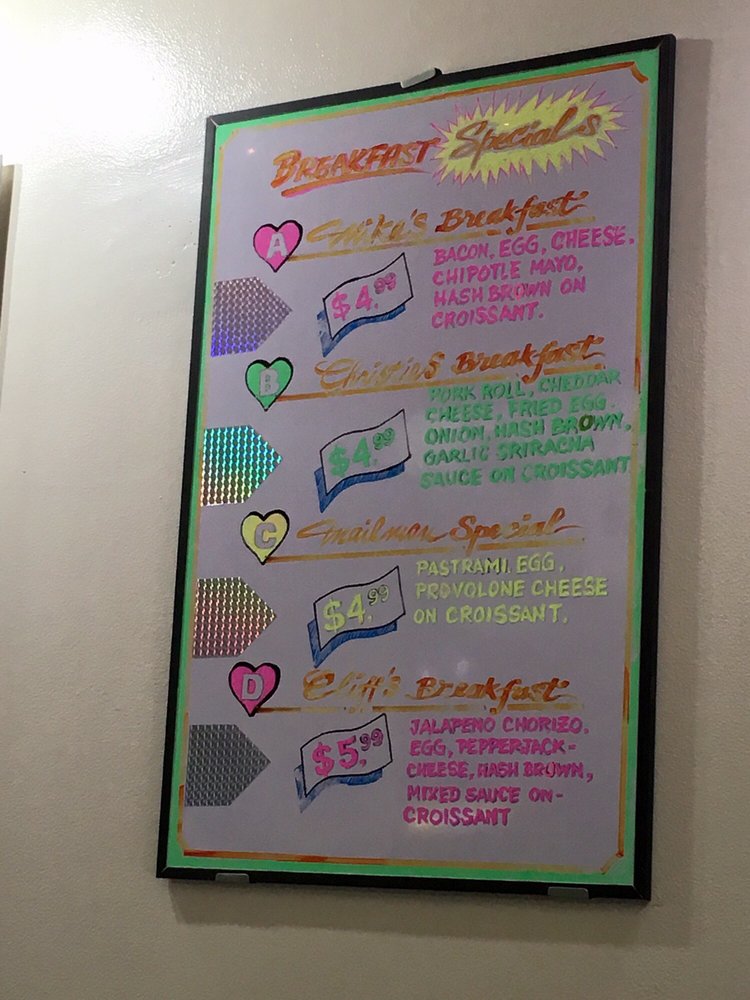 BREAKFAST Specials
A Mike's Breakfast
$4.99
BACON, EGG, CHEESE,
CHIPOTLE MAYO,
HASH BROWN ON
CROISSANT.
B Christie's Breakfast
$4.99
PORK ROLL, CHEDDAR
CHEESE, FRIED EGG
ONION, HASH BROWN,
GARLIC SRIRACHA
SAUCE ON CROISSANT
C Mailman Special
$4.99
PASTRAMI, EGG,
PROVOLONE CHEESE
ON CROISSANT.
D Cliff's Breakfast
$5.99
JALAPENO CHORIZO,
EGG, PEPPERJACK-
CHEESE, HASH BROWN,
MIXED SAUCE ON-
CROISSANT